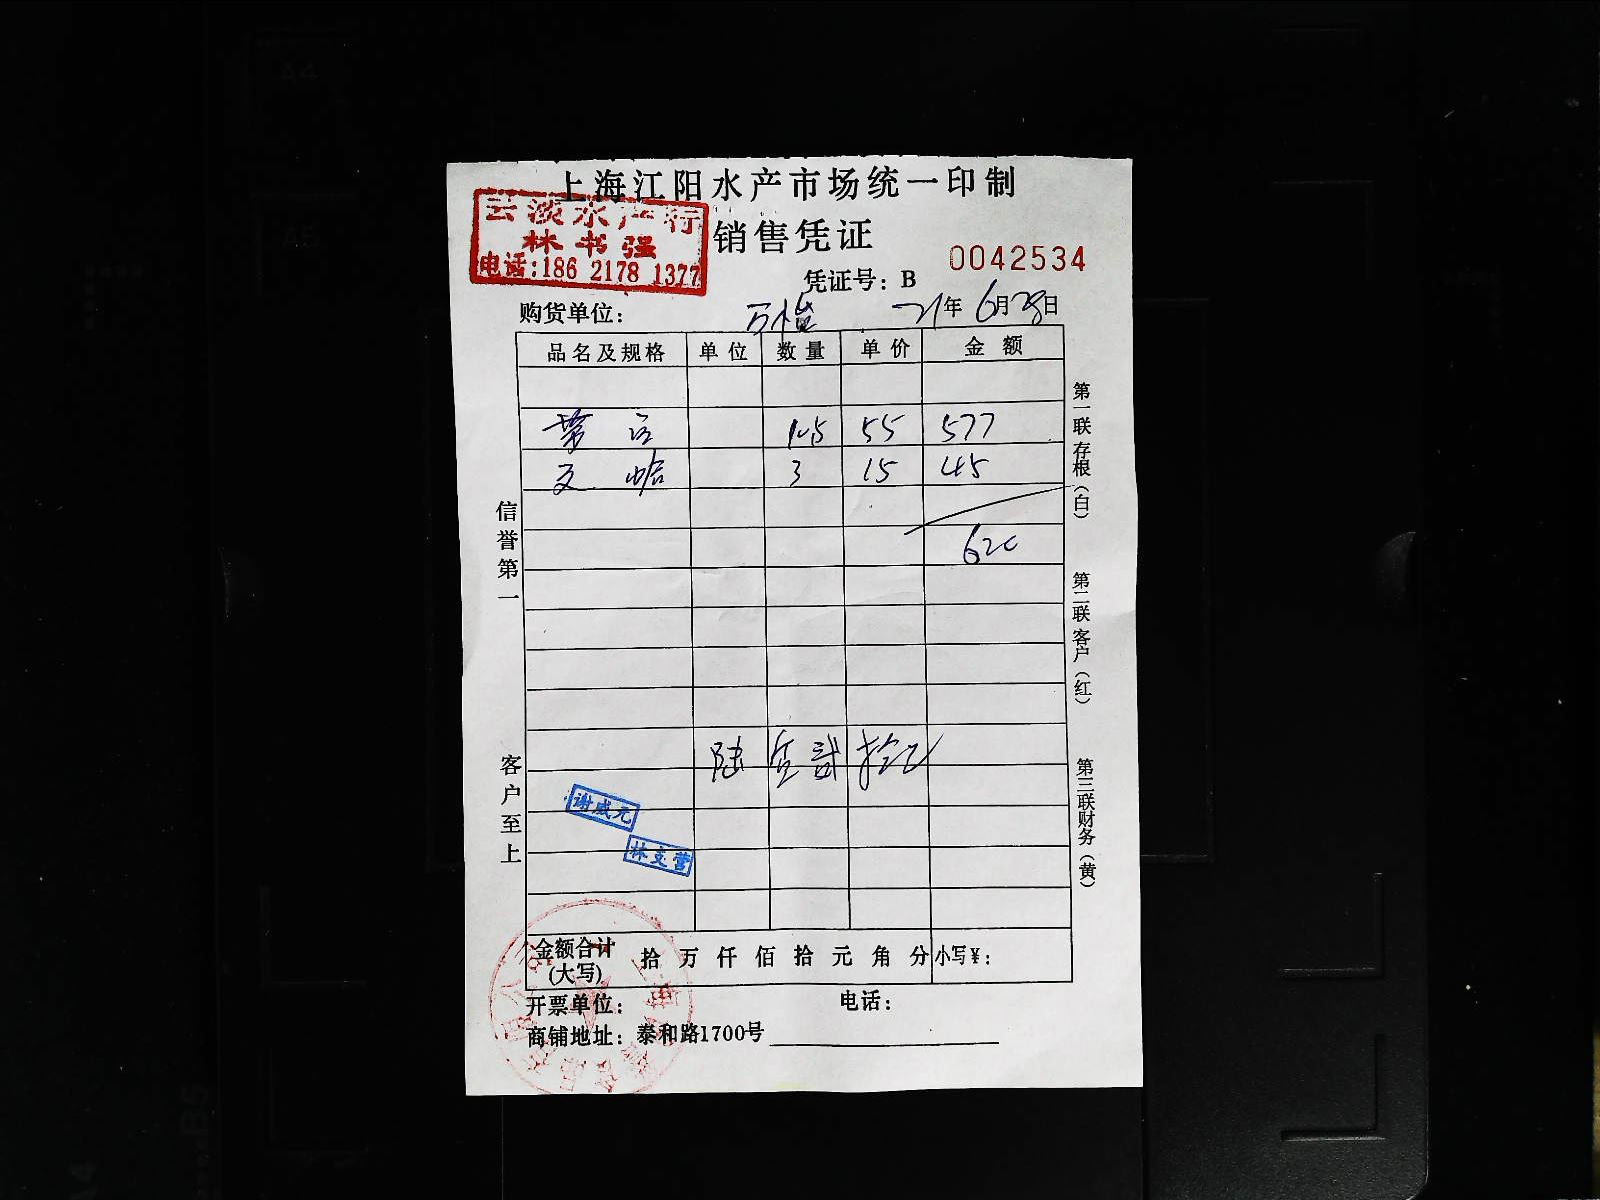 上海江阳水产市场统一印制
云淡水产行
林书强
电话:186 2178 1377
销售凭证
0042534
凭证号: B
购货单位: 万
21年6月28日
品名及规格 单位 数量 单价 金额
10.5 55 577
文蛤 3 15 45
620
陆佰贰拾元
谢威元
林文营
金额合计(大写) 拾 万 仟 佰 拾 元 角 分 小写¥:
开票单位: 电话:
商铺地址: 泰和路1700号
信誉第一
客户至上
第一联存根(白)
第二联客户(红)
第三联财务(黄)